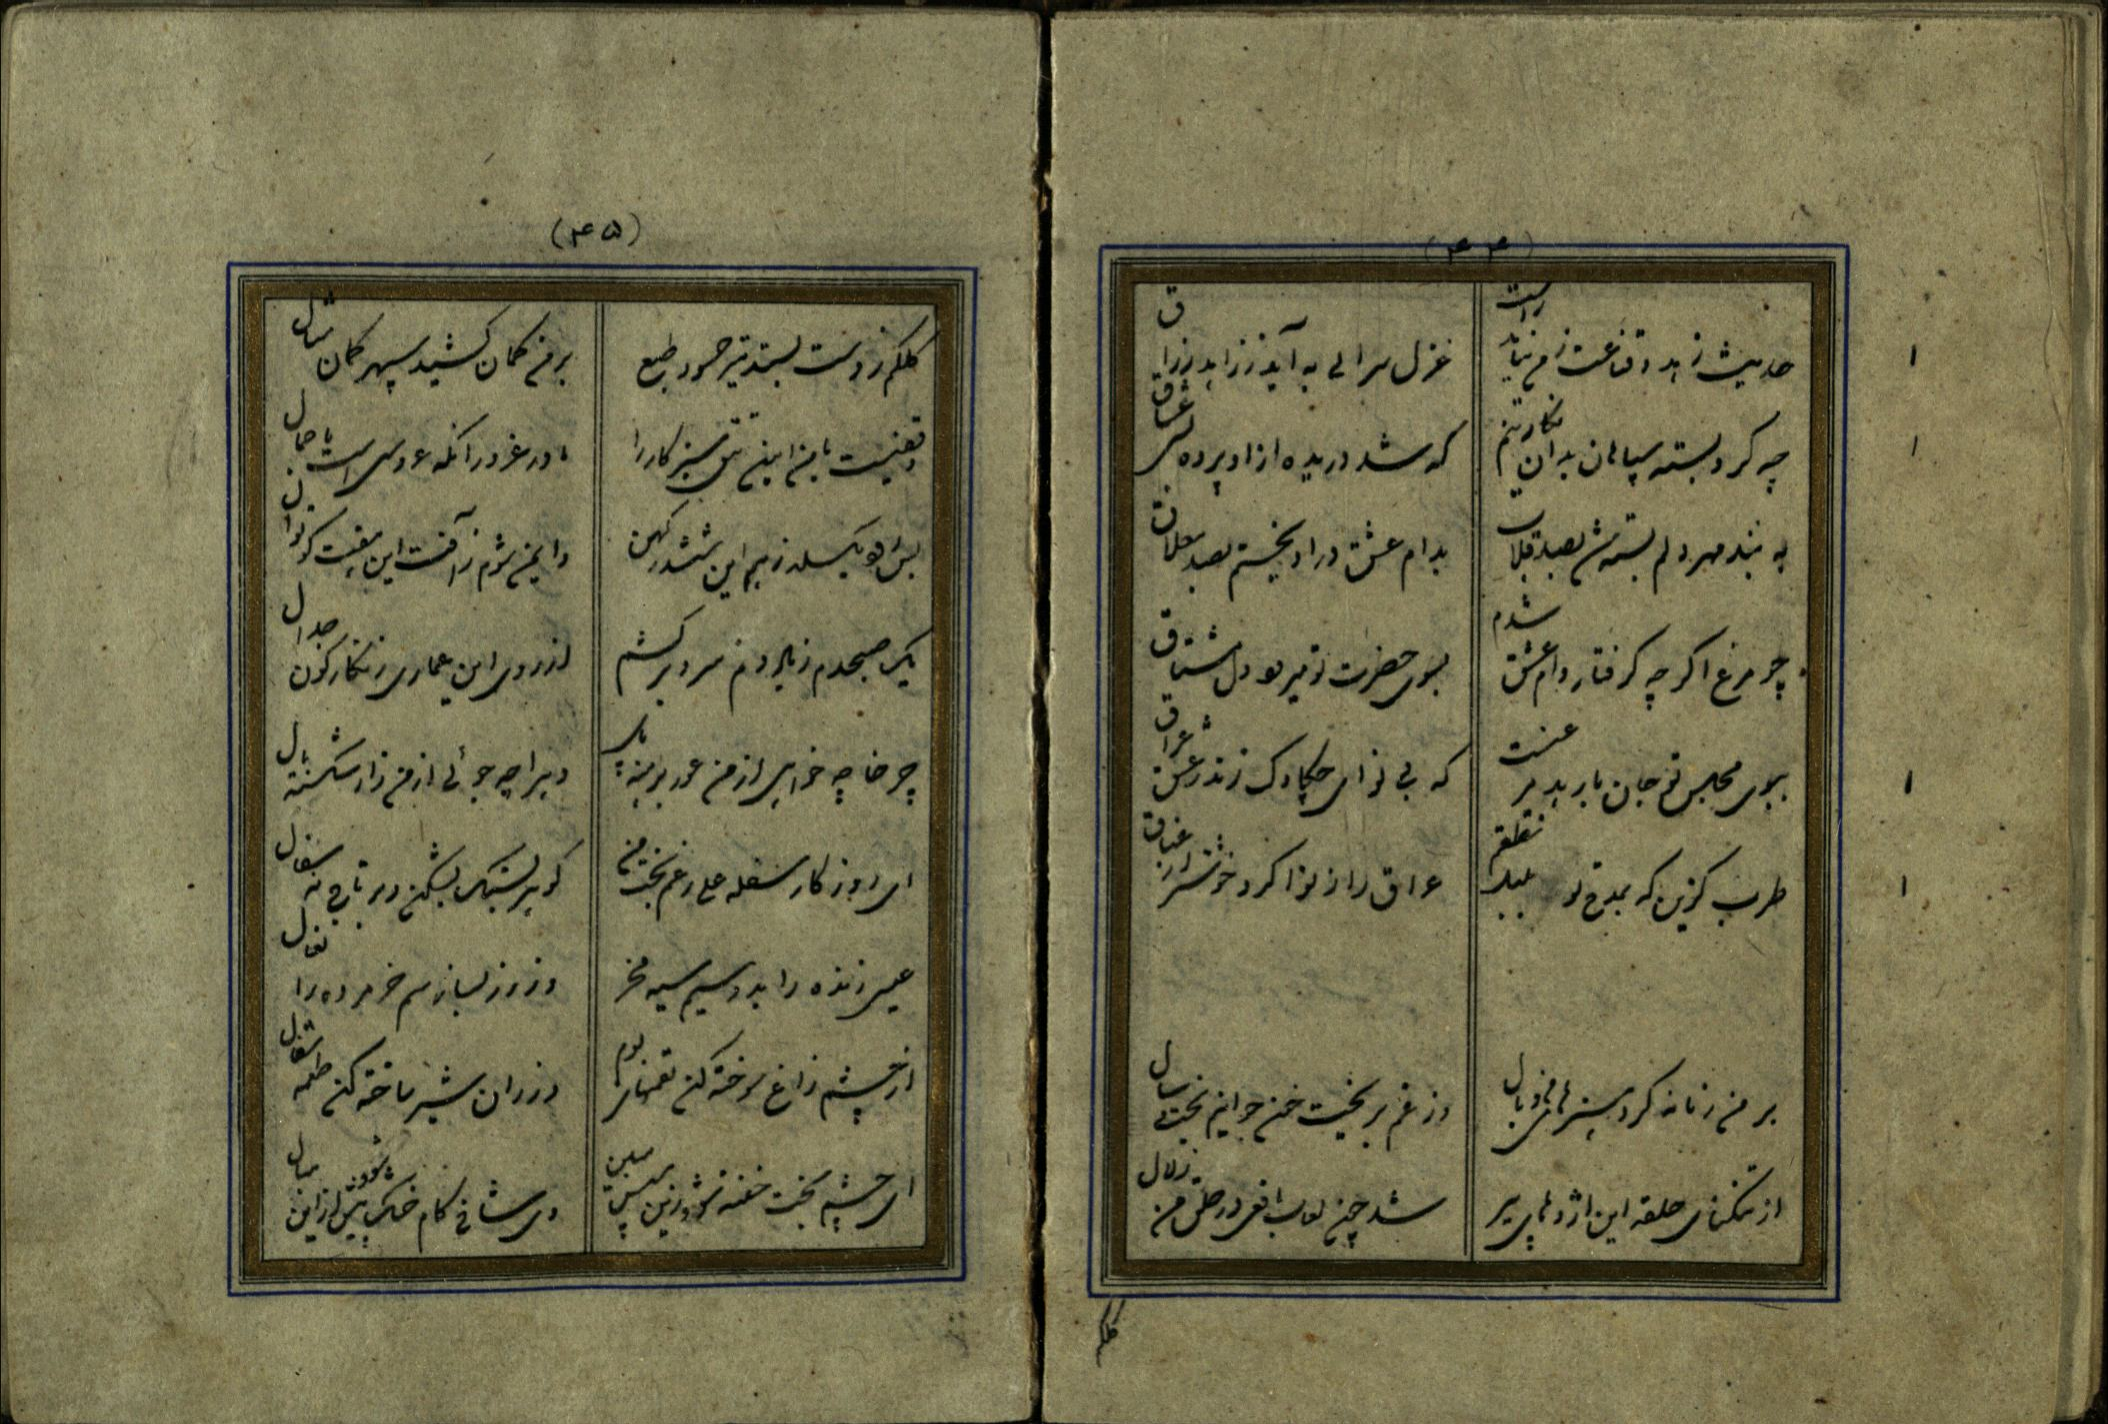 (۴۴)
حدیث زهد و قناعت ز من نیاید راست
غزل سرای به آید ز
چه کرد بسته سپاهان بدان نگارینم
که شد دریده ازاو پرده
به بند مهر دلم بسته شد بصد قلاب
بدام عشق دراویختم بصد
چو مرغ اگر چه گرفتار دام عشق شدم
بسوی حضرت تو میرود دل مشتاق
ببوی مجلس تو جان باربد
که بی نوای چکاوک زند ره عشاق
طرب گزین که بمدح تو بلبل
عراق را ز نوا کرد خوشتر از
بر من زمانه کرد هنرهای من وبال
وز غم بریخت خون جوانیم
از تنگنای حلقه این اژدهای پیر
شد چون لعاب افعی در حلق من زلال
کلکم
(۴۵)
کلکم ز دست بستد تیر حسود طبع
بر من کمان کشید سپهر کمان مثال
وقفیست با من این تتق سبزکار را
مادر غرور آنکه عروسی است باجمال
بس بگسلد ز هم این ششدر کهن
وایمن شوم ز آفت این هفت کوتوال
یک صبحدم ز ناله و دم سرد برکشم
از روی این عماری زنگارگون
چرخا چه خواهی از من عور برهنه پای
دهرا چه جوئی از من زار شکسته بال
ای روزگار سفله علی رغم بخت من
گوهر بسنگ بشکن و بر تاج نه سفال
عیسی زنده را بدو سیم سیه مخر
وز زر بساز سم خر مرده را نعال
از چشم زاغ سوخته کن لقمهای بوم
وز ران شیر ساخته کن طعمه شغال
ای چشم بخت خفته شو و زین سپس مبین
وی شاخ کام خشک شو و بیش ازین مبال